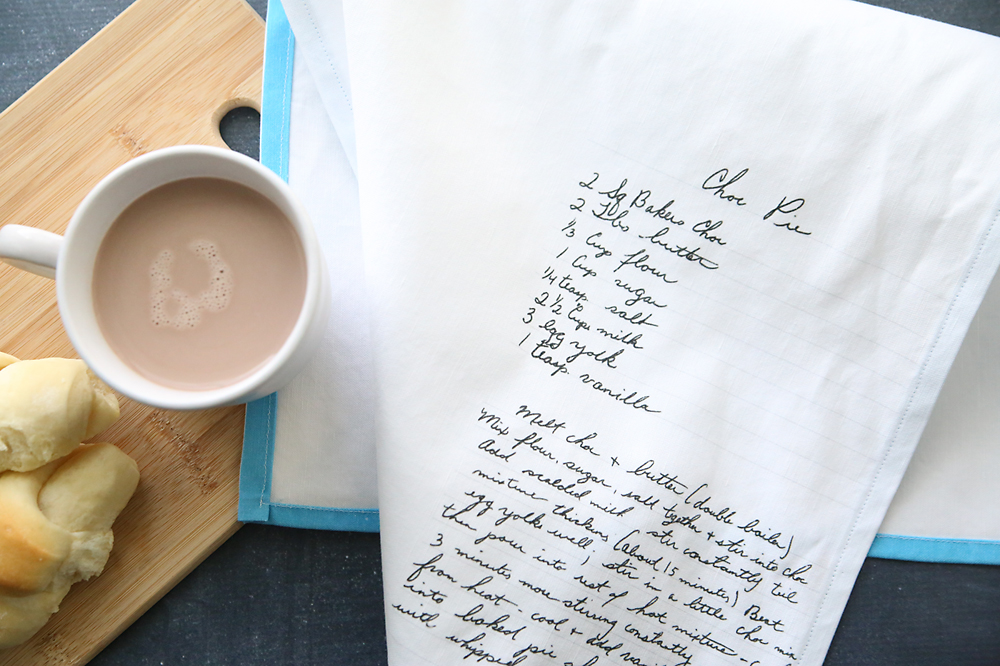 Choc Pie
2 Sq Bakers Choc
2 Tbs butter
1/3 Cup flour
1 Cup sugar
1/4 teasp salt
2 1/2 Cups milk
3 egg yolk
1 teasp. vanilla
Melt choc + butter (double boiler)
Mix flour, sugar, salt together + stir into choc
Add scalded milk stir constantly 'til
mixture thickens (about 15 minutes) Beat
egg yolks well; stir in a little choc mix
then pour into rest of hot mixture -
3 minutes more stirring constantly
from heat - cool + add
into baked pie
with whipped